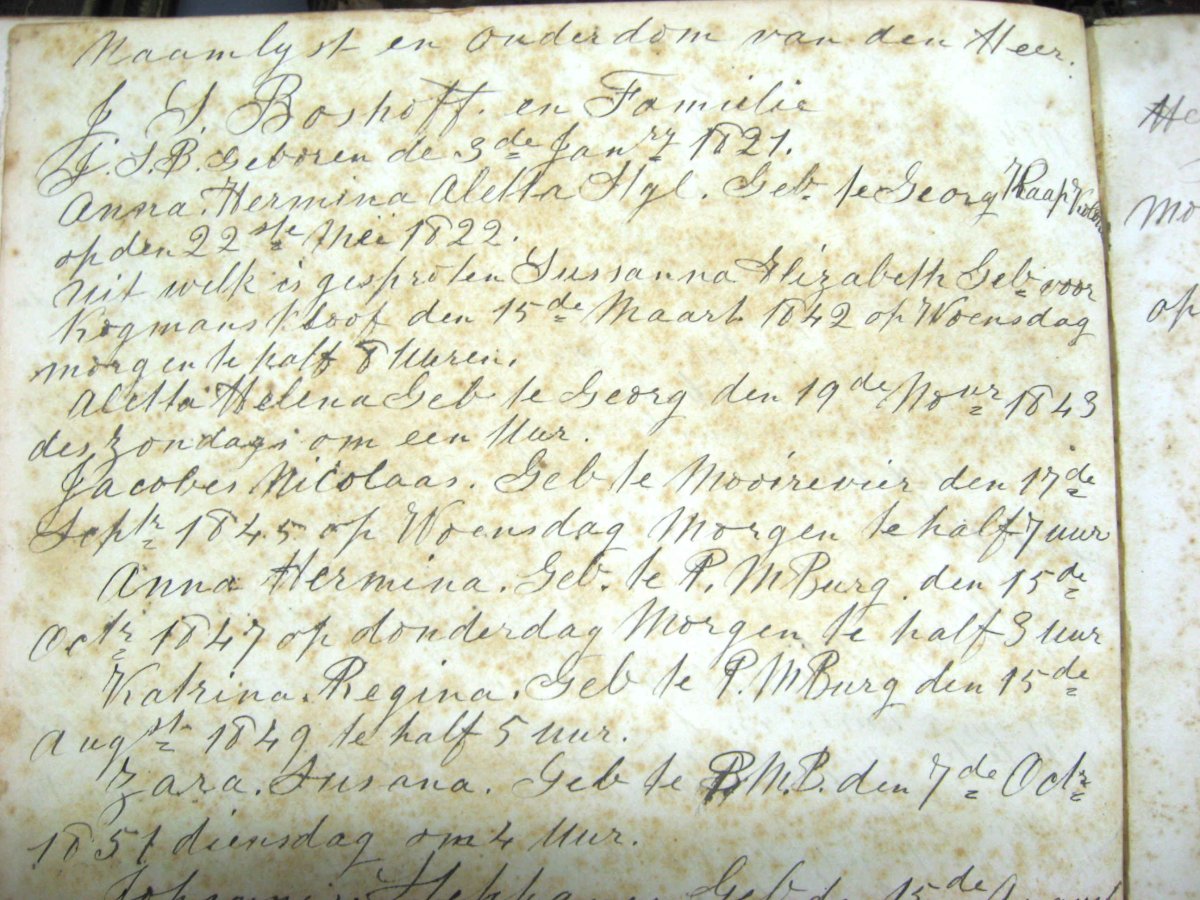 Naamlyst en ouderdom van den Heer.
J S Boshoff. en Familie
J. S. B. Geboren de 3de Janry 1821.
Anna. Hermina Aletta Nyl. Geb. te Georg Kaap Kolonie
op den 22ste Mei 1822.
uit welk is gesproten Sussanna Elizabeth Geb voor
Kogmans Kloof den 15de Maart 1842 op Woensdag
morgen te half 8 Uuren.
Aletta Helena Geb te Georg den 19de Novr 1843
des zondags om een Uur.
Jacobus Nicolaas. Geb te Mooirevier den 17de
Septr 1845 op Woensdag Morgen te half 7 uur
Anna Hermina. Geb. te P. M Burg. den 15de
Octr 1847 op donderdag Morgen te half 3 uur
Katrina. Regina. Geb te P. M Burg den 15de
Augst 1849 te half 5 uur.
Zara. Susana. Geb te P. M. B. den 7de Octr
1851 diensdag om 4 Uur.
Geb te 15de
He
Mo
op